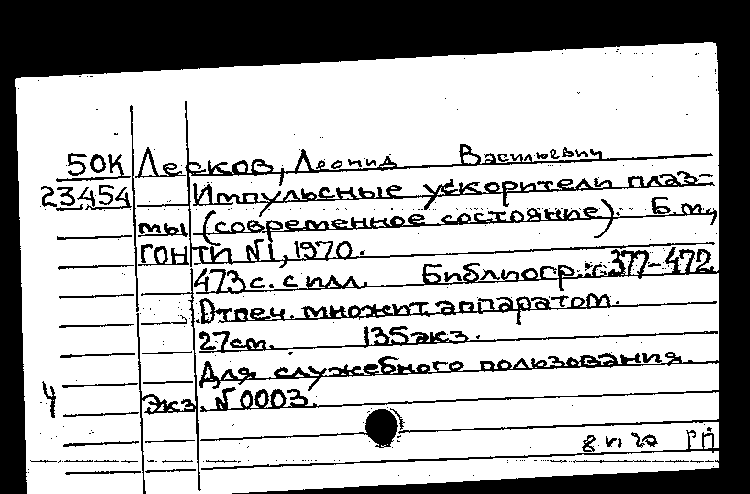 50К Лесков, Леонид Васильевич
23454 Импульсные ускорители плаз-
мы (современное состояние). Б.м.,
ГОНТИ №1, 1970.
473с. с илл. Библиогр.: с. 377-472.
Отпеч. множит. аппаратом.
27см. 135экз.
Для служебного пользования.
Ч Экз. №0003.
8 VI 70 РП